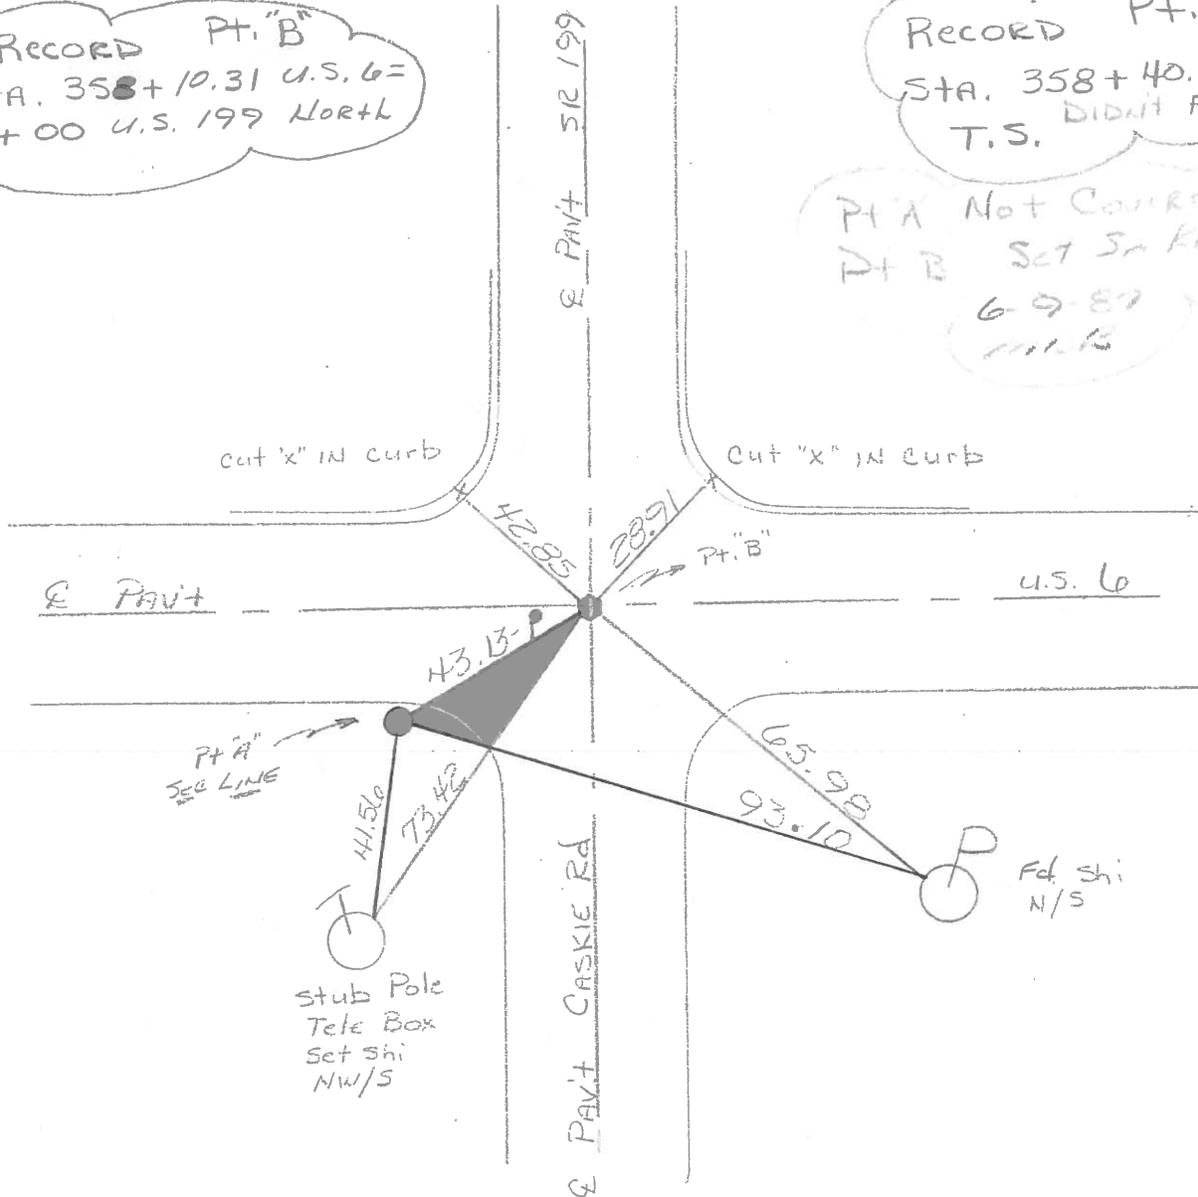 Record Pt. "B"
TA. 358+10.31 U.S. 6=
+00 U.S. 199 North
Record Pt.
StA. 358+40.
DIDN'T
T.S.
Pt A Not
Pt B Set
6-9-87
℄ PAV't SR 199
Cut "X" IN Curb
Cut "X" IN Curb
42.85
28.91
Pt. "B"
℄ PAV't
U.S. 6
43.13
Pt "A"
SEC LINE
65.98
93.10
41.56
73.42
Fd. Shi
N/S
Stub Pole
Tele Box
Set Shi
NW/S
℄ PAV't CASKIE Rd